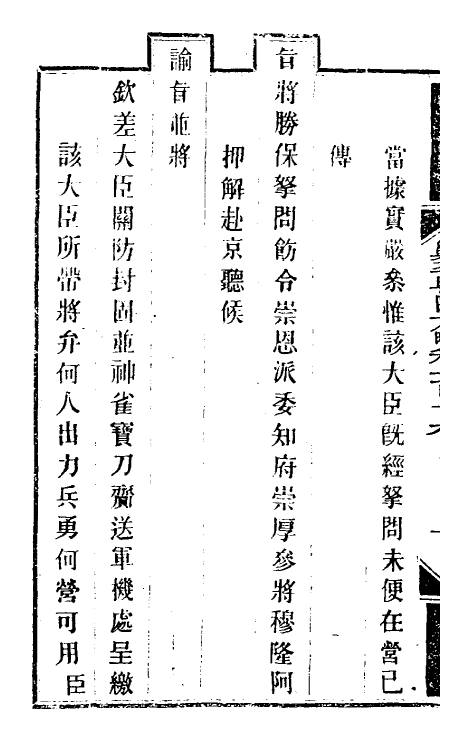 當據實嚴參惟該大臣旣經拏問未便在營已
傳
旨將勝保拏問飭令崇恩派委知府崇厚參將穆隆阿
押解赴京聽候
諭旨並將
欽差大臣關防封固並神雀寶刀齎送軍機處呈繳
該大臣所帶將弁何人出力兵勇何營可用臣